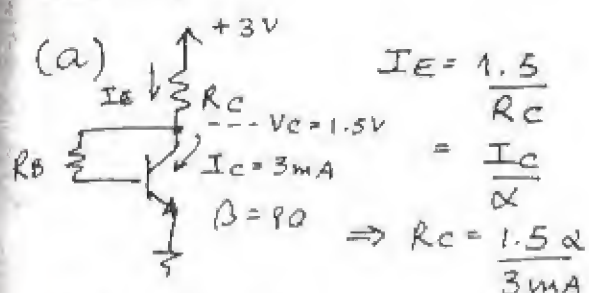 (a)
+3V
IE
RC
VC = 1.5V
RB
IC = 3mA
β = 90
IE = 1.5
RC
= IC
α
⇒ RC = 1.5 α
3mA